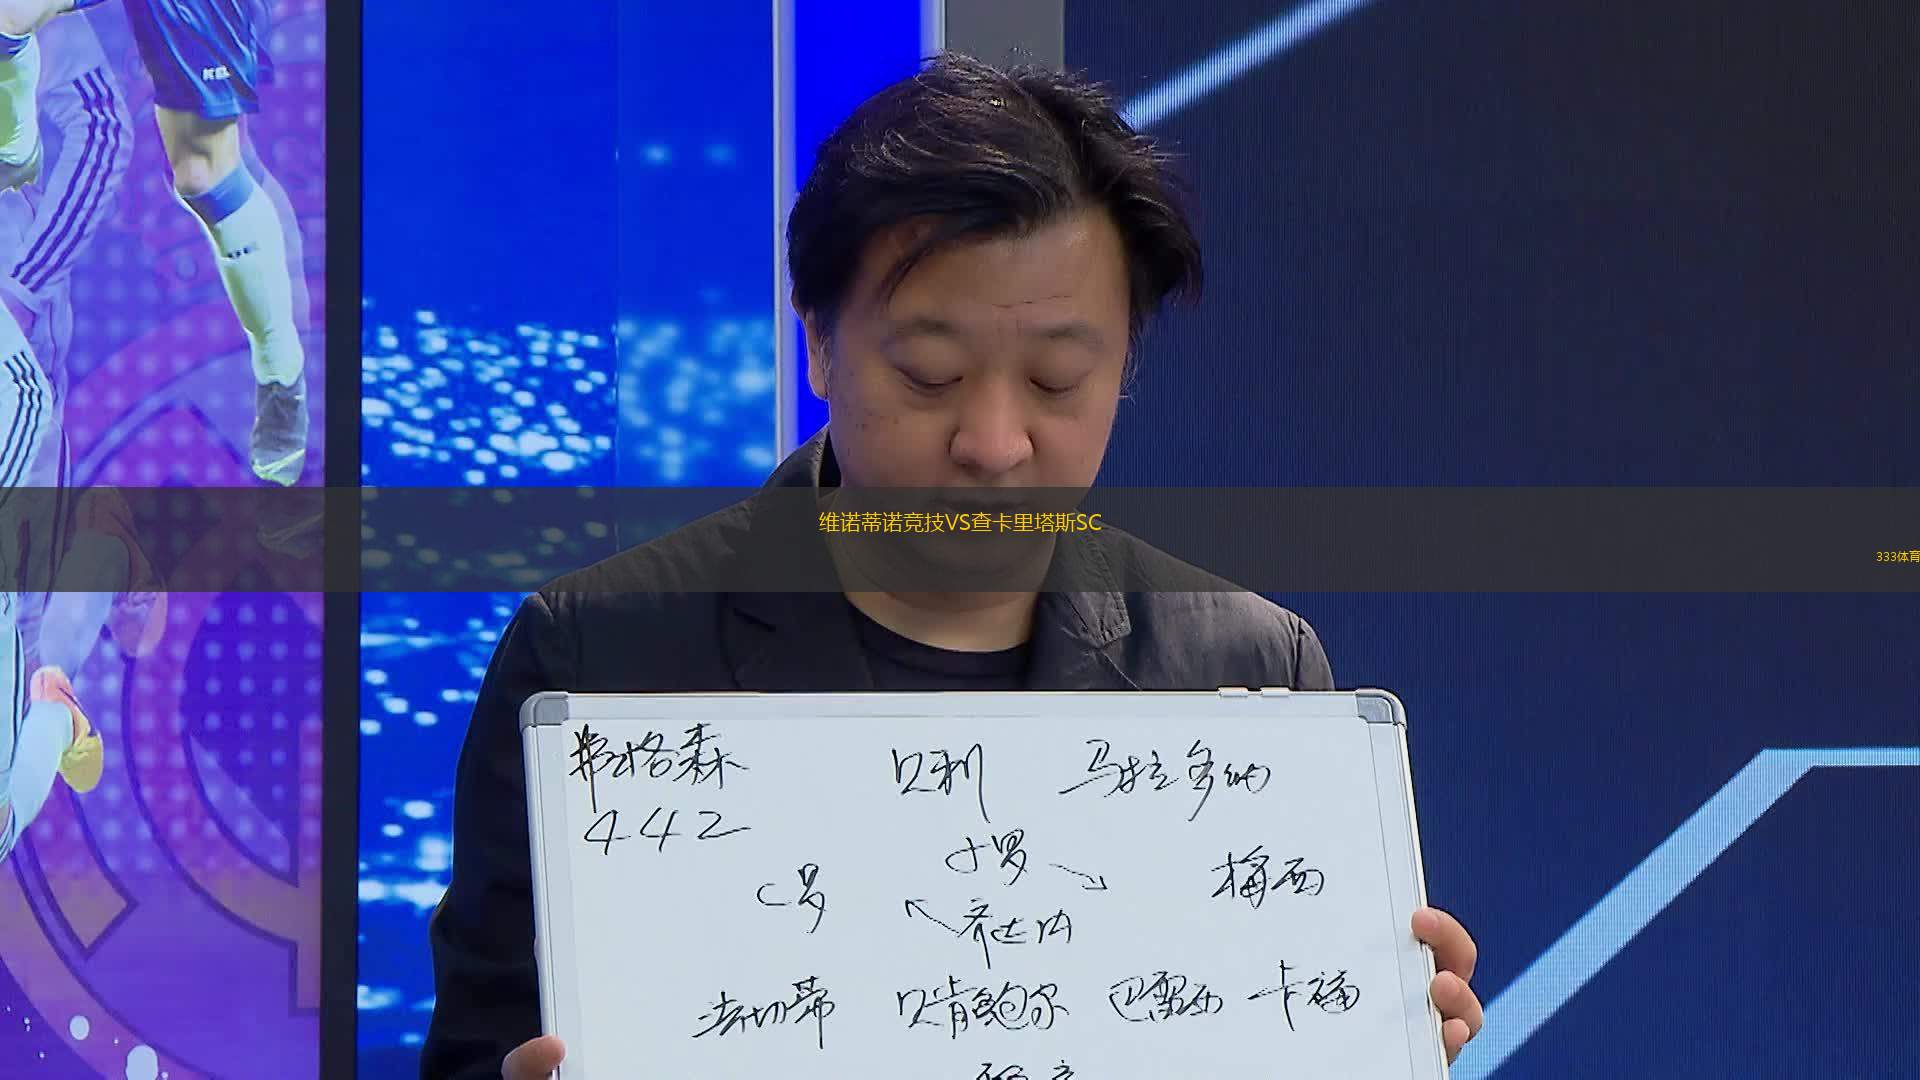 维诺蒂诺竞技VS查卡里塔斯SC
333体育
弗格森 贝利 马拉多纳
442
小罗
C罗 梅西
齐达内
法切蒂 贝肯鲍尔 巴雷西 卡福